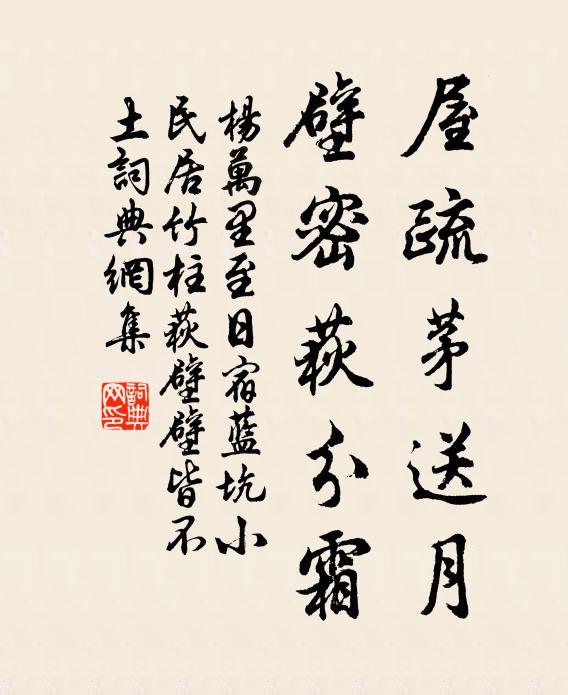 屋疏茅送月
壁密荻分霜
楊萬里至日宿藍坑小
民居竹柱荻壁壁皆不
土詞典網集
詞典
网印